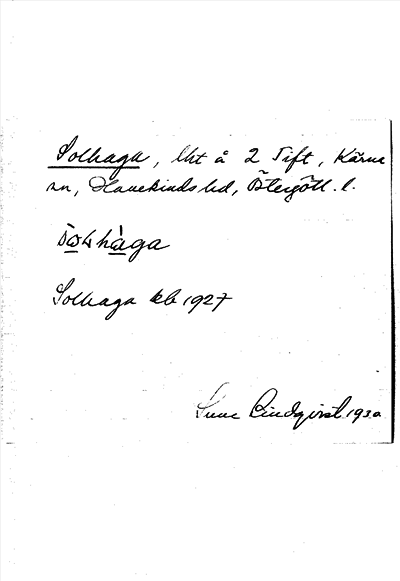 Solhaga, lht å 2 Tift, Kärna
sn, Hanekinds hd, Östergötl. l.
hàga
Solhaga kb 1927
Sune Lindqvist 1930